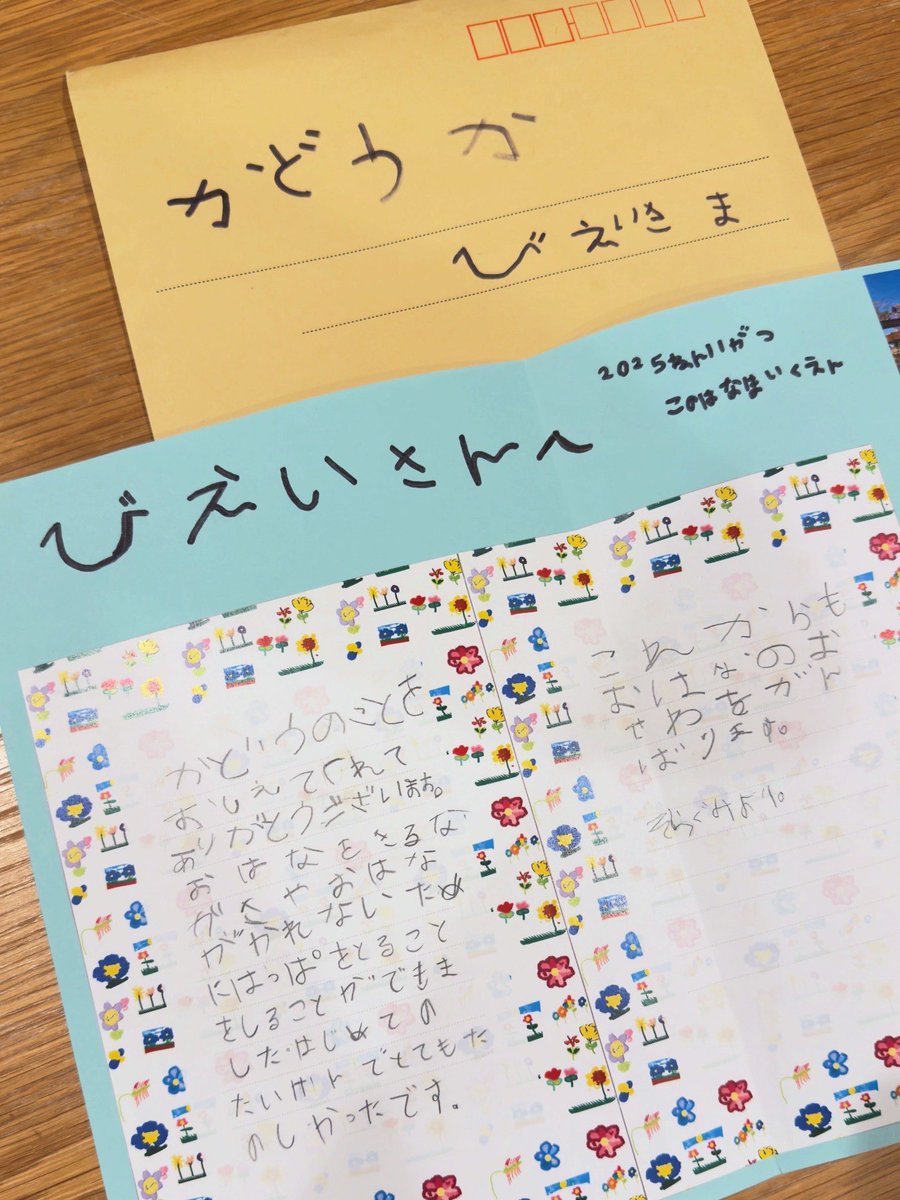 かどうか
びえいさま
2025ねんいがつ
このはなほいくえん
びえいさんへ
かどうのことを
おしえてくれて
ありがとうございます。
おはなをきるな
がさやおはな
がかれないため
にはっぱをとること
をしることができま
した。はじめての
たいけんでとてもた
のしかったです。
これからも
おはなのお
さわをがん
ばります。
そらぐみより。